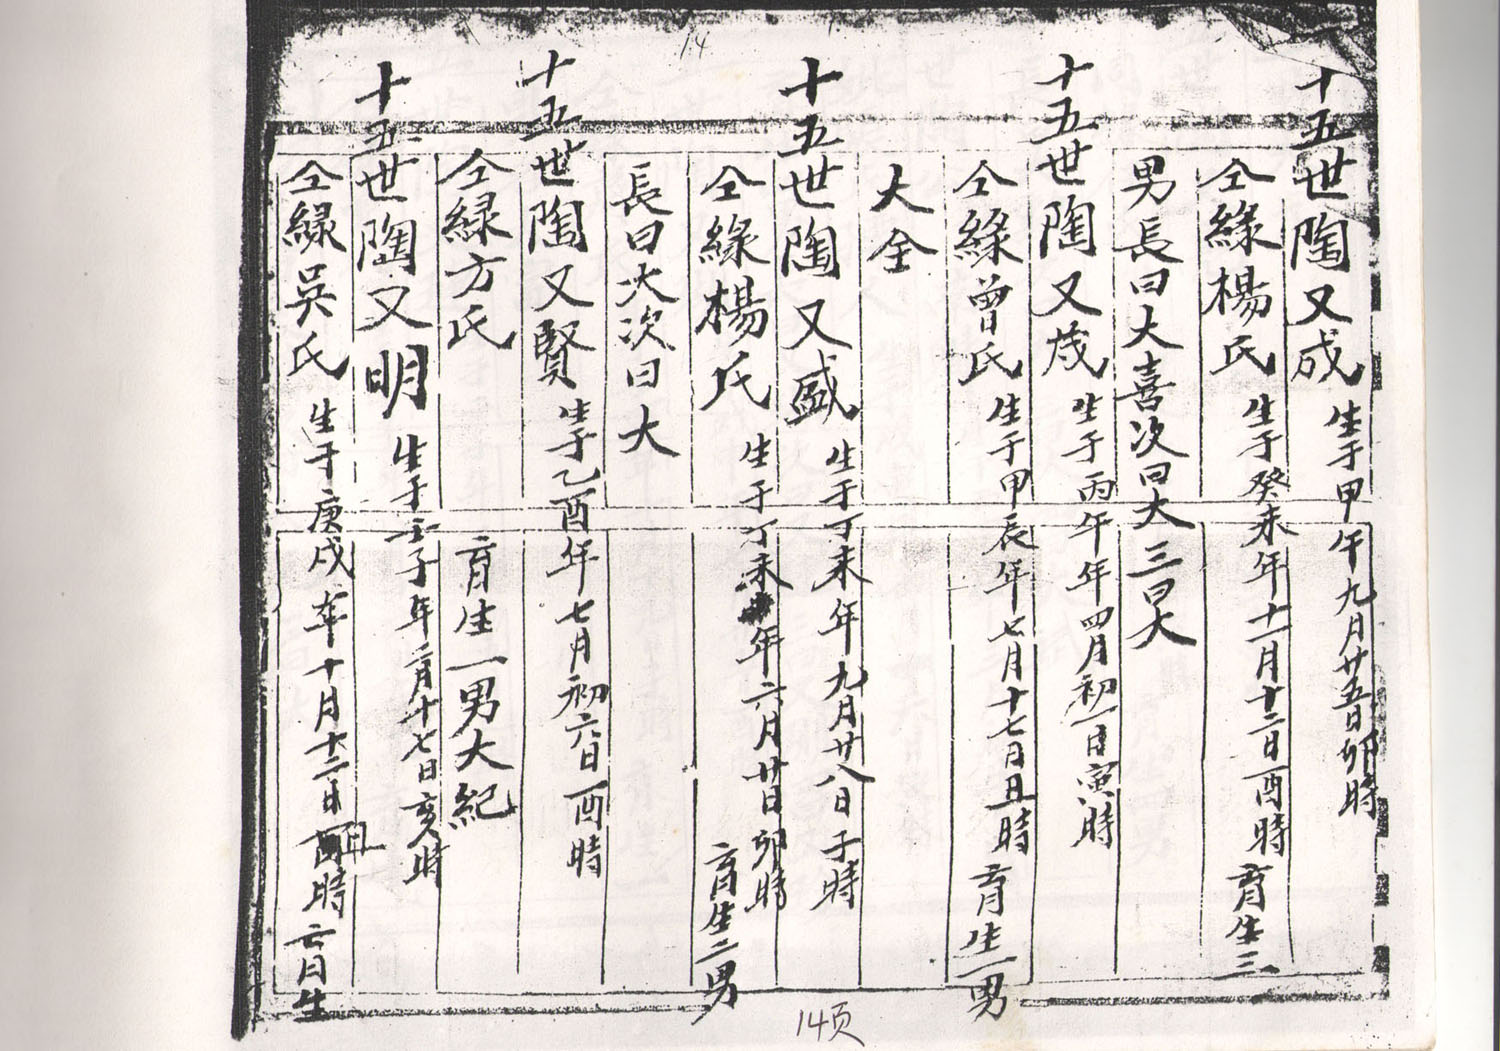 14
十五世陶又成 生于甲午九月廿五日卯時
仝緣楊氏 生于癸未年十一月十二日酉時 育生三
男長曰大喜次曰大三曰大
十五世陶又茂 生于丙午年四月初一日寅時
仝緣曾氏 生于甲辰年七月十七日丑時 育生一男
大全
十五世陶又盛 生于丁未年九月廿八日子時
仝緣楊氏 生于丁未年六月廿日卯時 育生二男
長曰大次曰大
十五世陶又賢 生于乙酉年七月初六日酉時
仝緣方氏 育生一男大紀
十五世陶又明 生于壬子年二月十七日亥時
仝緣吳氏 生于庚戌年十月十二日丑時 育生
14页